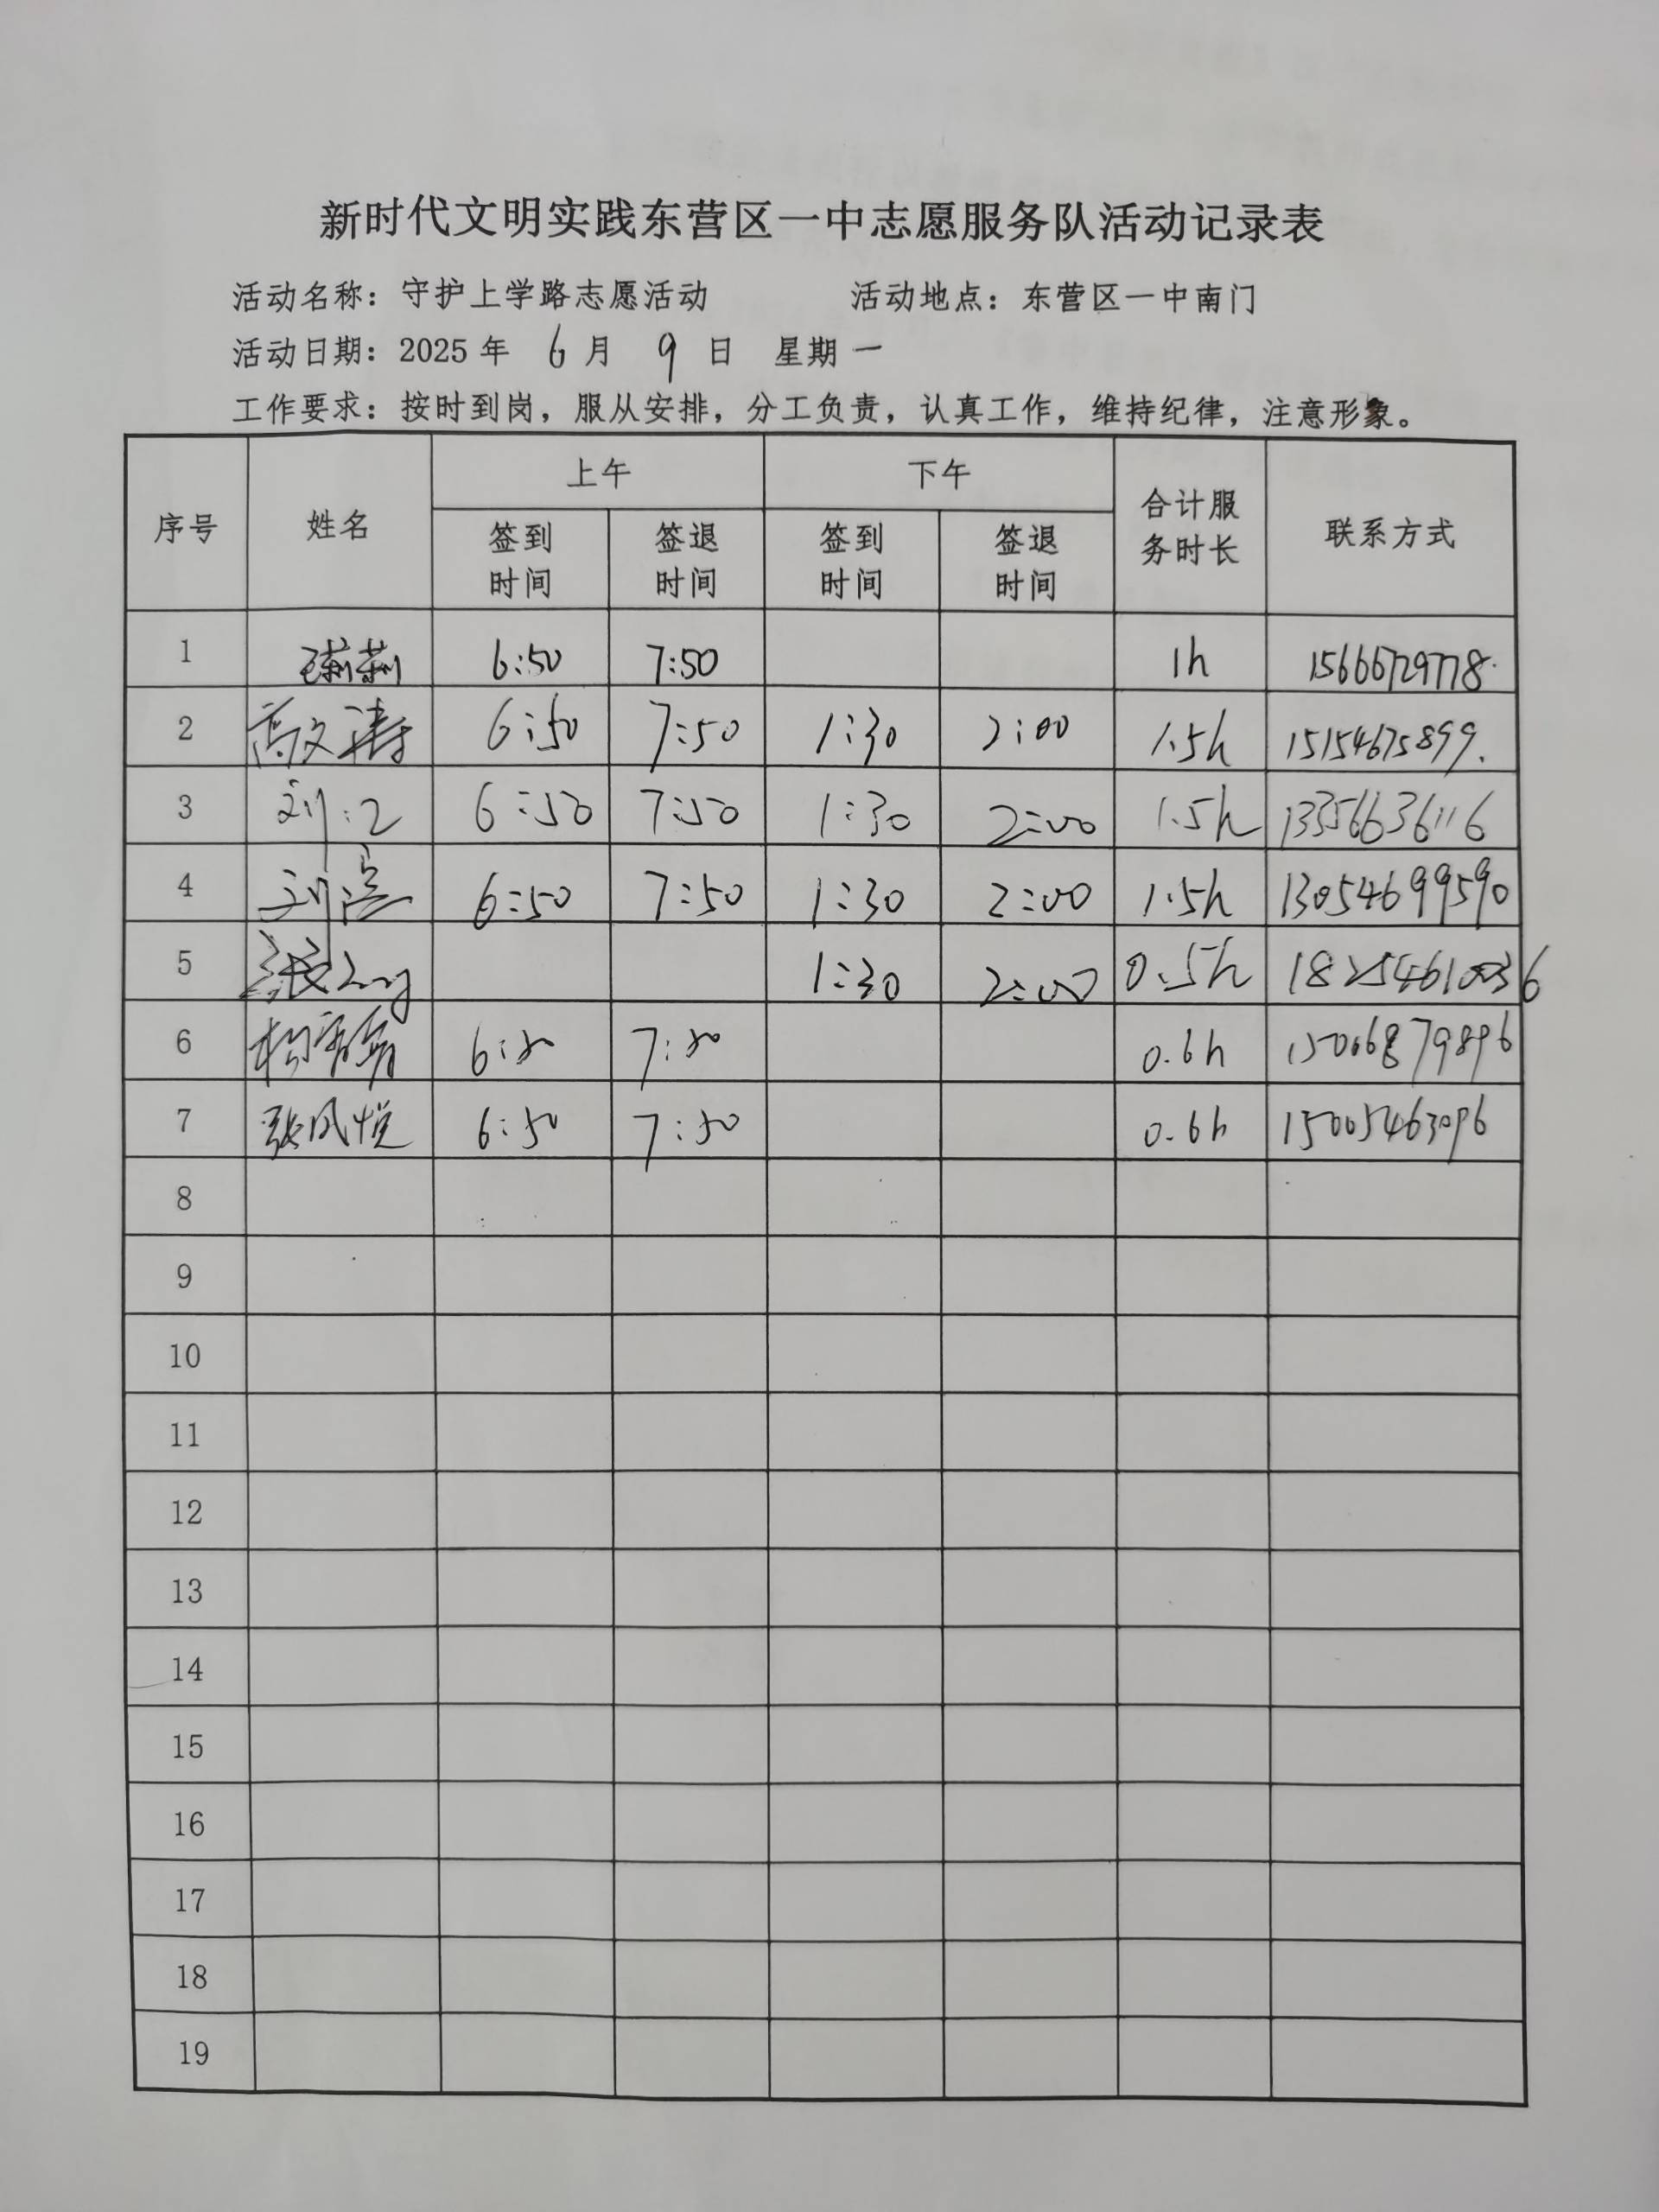 新时代文明实践东营区一中志愿服务队活动记录表
活动名称：守护上学路志愿活动 活动地点：东营区一中南门
活动日期：2025 年 6 月 9 日 星期一
工作要求：按时到岗，服从安排，分工负责，认真工作，维持纪律，注意形象。
序号 姓名 上午 下午 合计服务时长 联系方式
签到时间 签退时间 签到时间 签退时间
1 王莉莉 6:50 7:50 1h 15666729778
2 高文涛 6:50 7:50 1:30 2:00 1.5h 15154675899.
3 6:50 7:50 1:30 2:00 1.5h 13356636116
4 6:50 7:50 1:30 2:00 1.5h 13054699590
5 1:30 2:00 0.5h
6 6:50 7:50 0.6h 15066879896
7 张凤悦 6:50 7:50 0.6h 15005463096
8
9
10
11
12
13
14
15
16
17
18
19